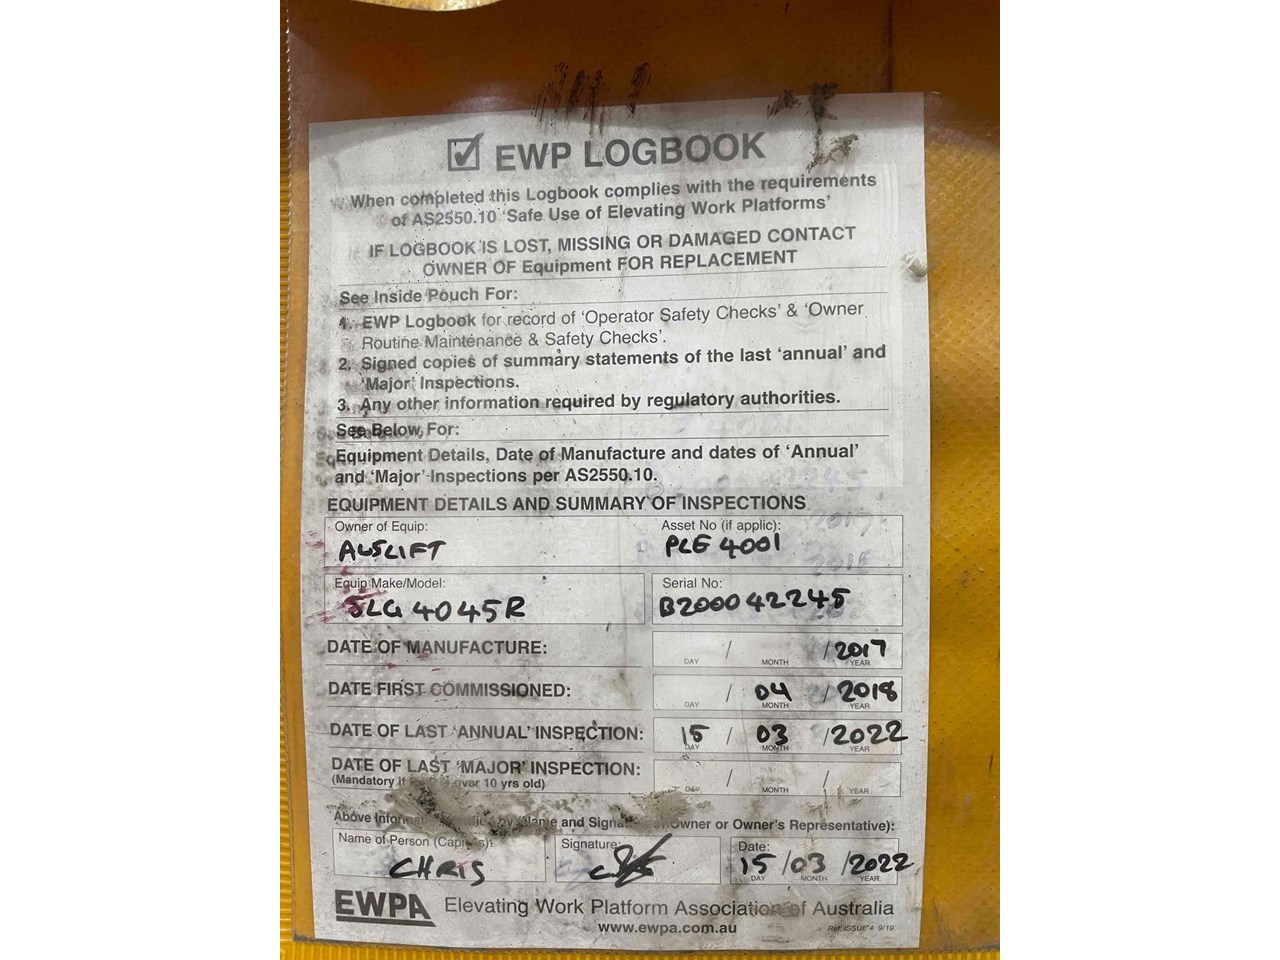 EWP LOGBOOK
When completed this Logbook complies with the requirements
of AS2550.10 'Safe Use of Elevating Work Platforms'
IF LOGBOOK IS LOST, MISSING OR DAMAGED CONTACT
OWNER OF Equipment FOR REPLACEMENT
See Inside Pouch For:
1. EWP Logbook for record of 'Operator Safety Checks' & 'Owner
Routine Maintenance & Safety Checks'.
2. Signed copies of summary statements of the last 'annual' and
'Major' Inspections.
3. Any other information required by regulatory authorities.
See Below For:
Equipment Details, Date of Manufacture and dates of 'Annual'
and 'Major' Inspections per AS2550.10.
EQUIPMENT DETAILS AND SUMMARY OF INSPECTIONS
Owner of Equip: Asset No (if applic):
AUSLIFT PLE 4001
Equip Make/Model: Serial No:
SLG 4045R B200042245
DATE OF MANUFACTURE: / / 2017
DAY MONTH YEAR
DATE FIRST COMMISSIONED: / 04 / 2018
DAY MONTH YEAR
DATE OF LAST 'ANNUAL' INSPECTION: 15 / 03 / 2022
DAY MONTH YEAR
DATE OF LAST 'MAJOR' INSPECTION: / /
(Mandatory if over 10 yrs old) DAY MONTH YEAR
Above by Name and Owner or Owner's Representative):
Name of Person (Capitals): Signature: Date:
CHRIS 15 / 03 / 2022
DAY MONTH YEAR
EWPA Elevating Work Platform Association of Australia
www.ewpa.com.au
Ref: ISSUE 4 9/19